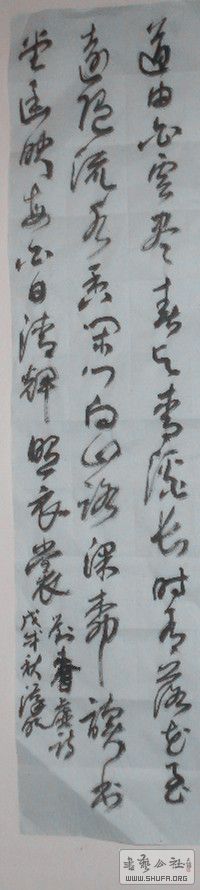 道由白雲尽春与青溪长时有落花至
遠随流水香闲门向山路深柳讀书
堂幽映每白日清辉照衣裳
刘昚虚诗
书艺公社
WWW.SHUFA.ORG